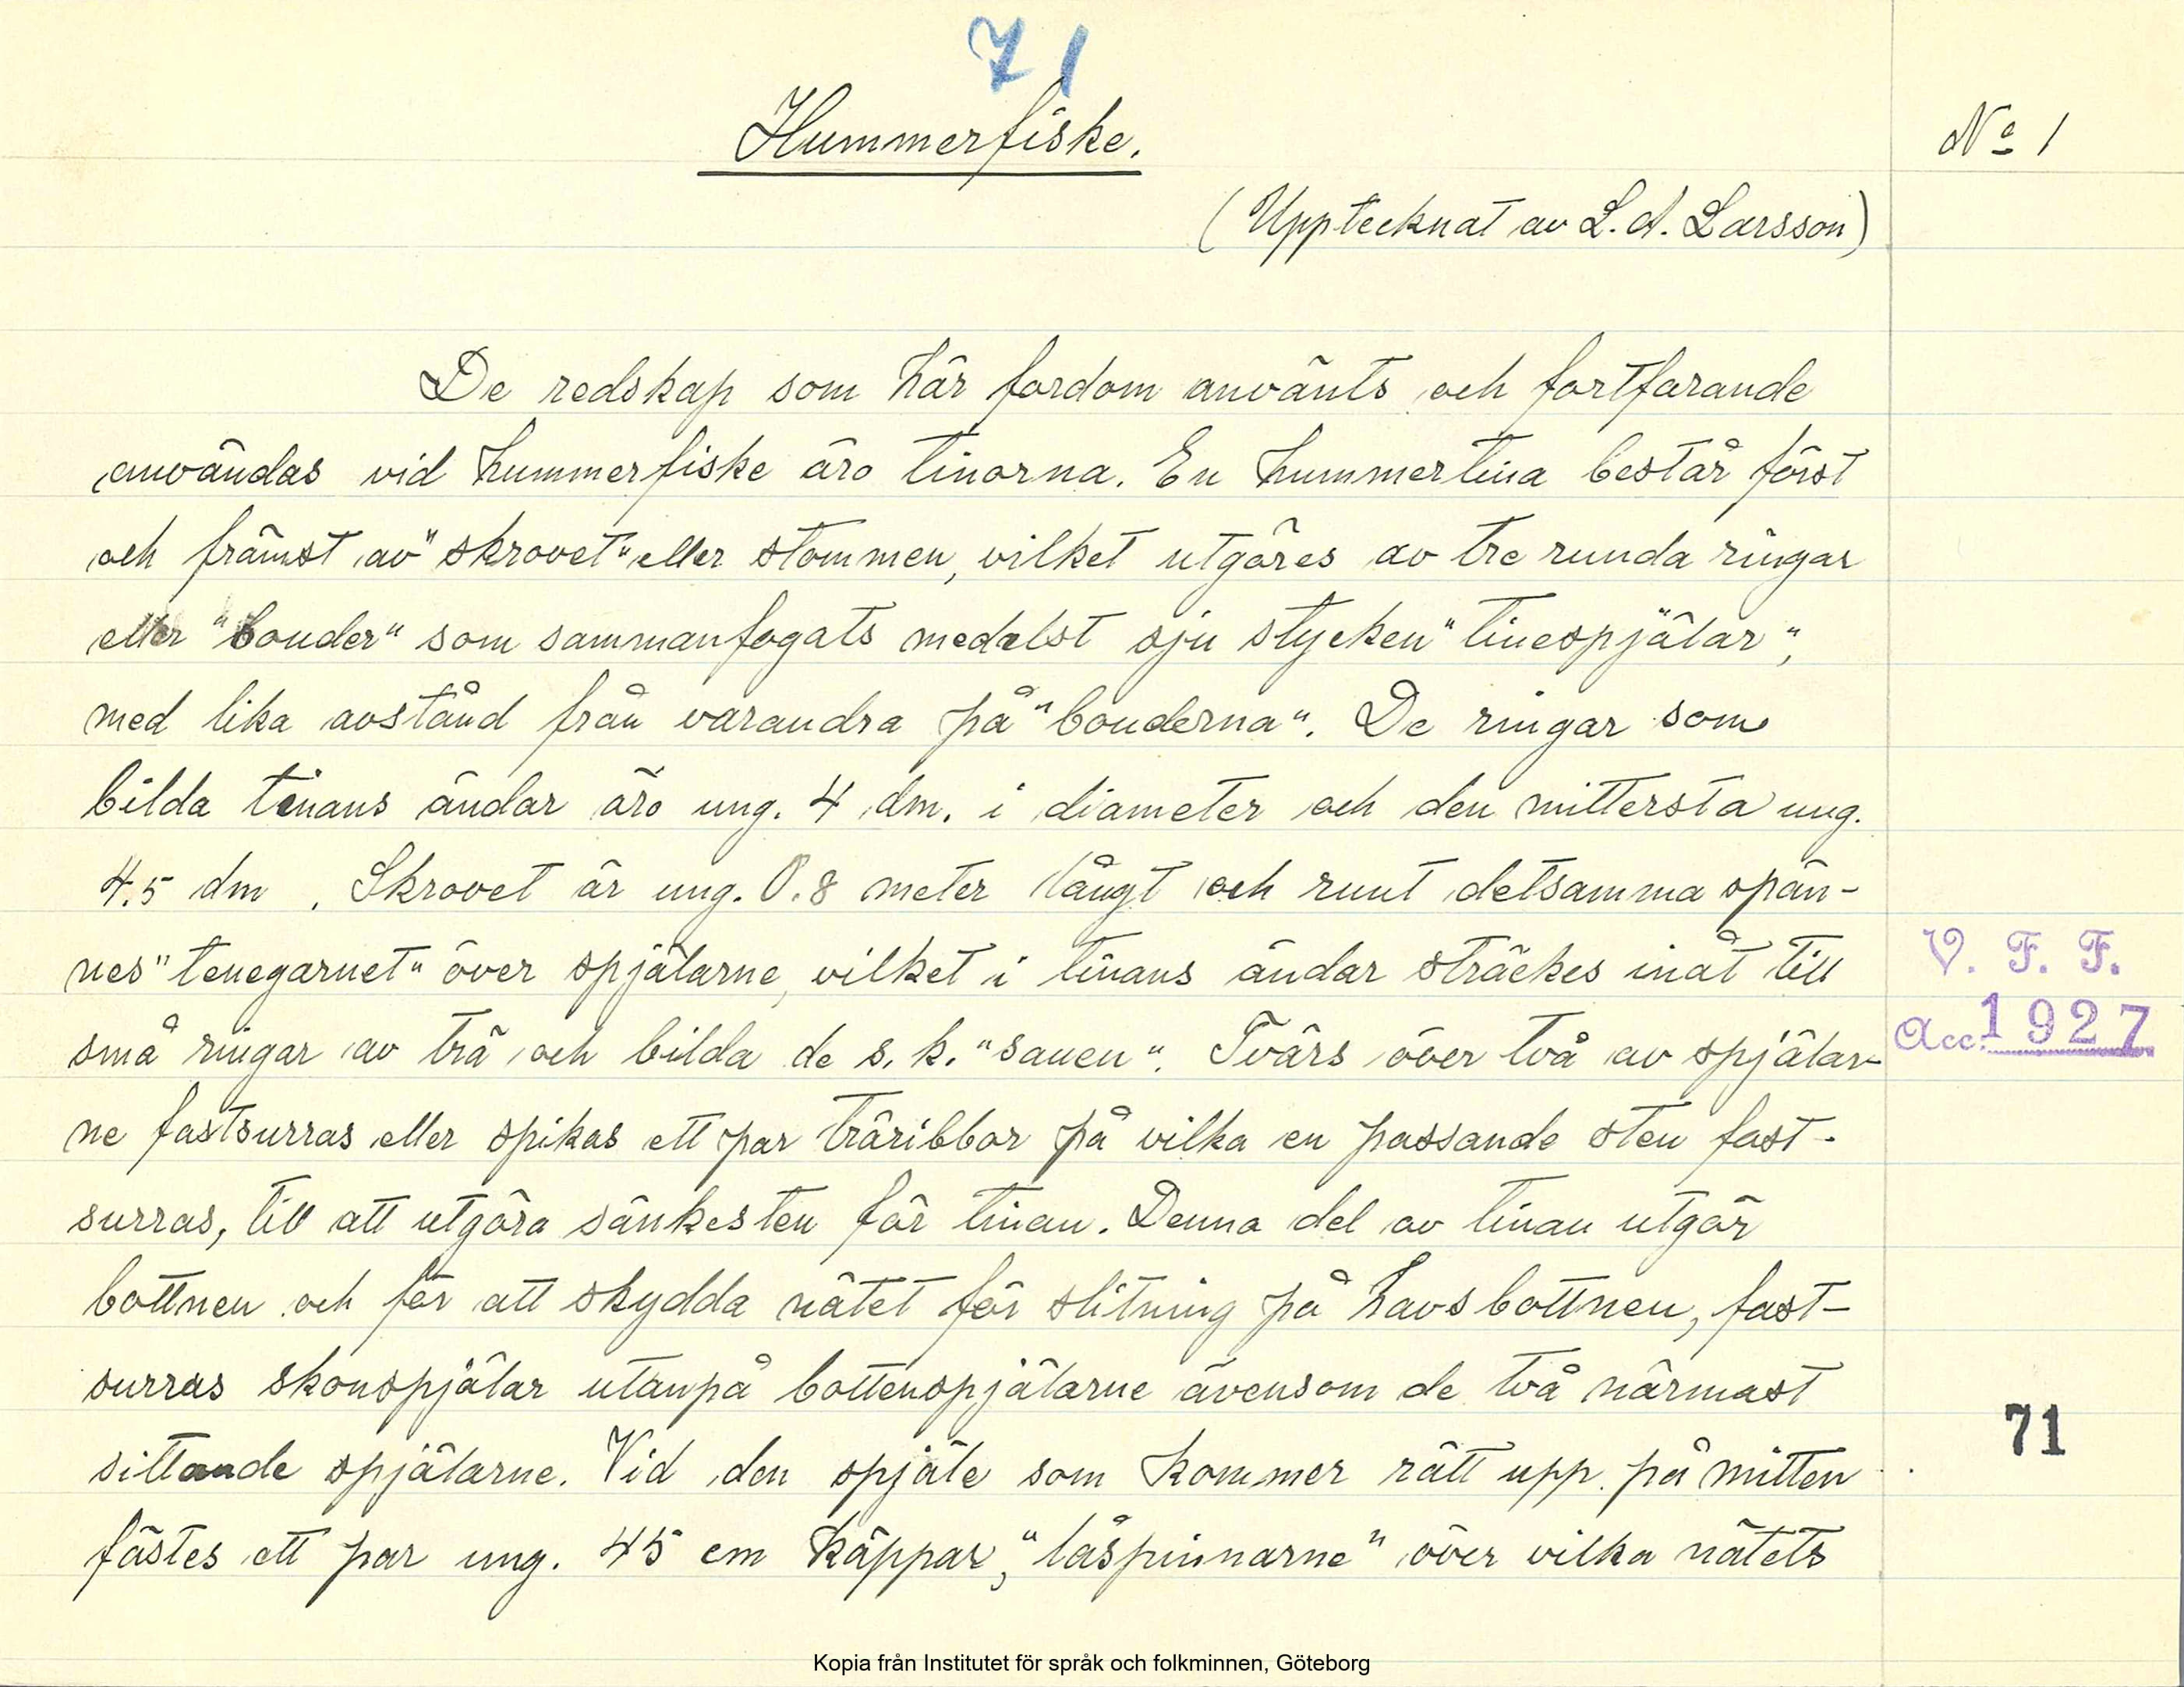 71
Hummerfiske.
No 1
(Upptecknat av L. A. Larsson)
De redskap som här fordom använts och fortfarande
användas vid hummerfiske äro tinorna. En hummertina består först
och främst av "skrovet" eller stommen, vilket utgöres av tre runda ringar
eller "bonder" som sammanfogats medelst sju stycken "tinespjälar",
med lika avstånd från varandra på "bonderna". De ringar som
bilda tinans ändar äro ung. 4 dm. i diameter och den mittersta ung.
4.5 dm . Skrovet är ung. 0.8 meter långt och runt detsamma spän-
nes "tenegarnet" över spjälarne, vilket i tinans ändar sträckes inåt till
små ringar av trä och bilda de s. k. "sauen". Tvärs över två av spjälar-
ne fastsurras eller spikas ett par träribbor på vilka en passande sten fast-
surras, till att utgöra sänkesten för tinan. Denna del av tinan utgör
bottnen och för att skydda nätet för slitning på havsbottnen, fast-
surras skonspjälar utanpå bottenspjälarne ävensom de två närmast
sittande spjälarne. Vid den spjäle som kommer rätt upp på mitten
fästes ett par ung. 45 cm käppar, "låspinnarne" över vilka nätets
V. F. F.
Acc. 1927
71
Kopia från Institutet för språk och folkminnen, Göteborg